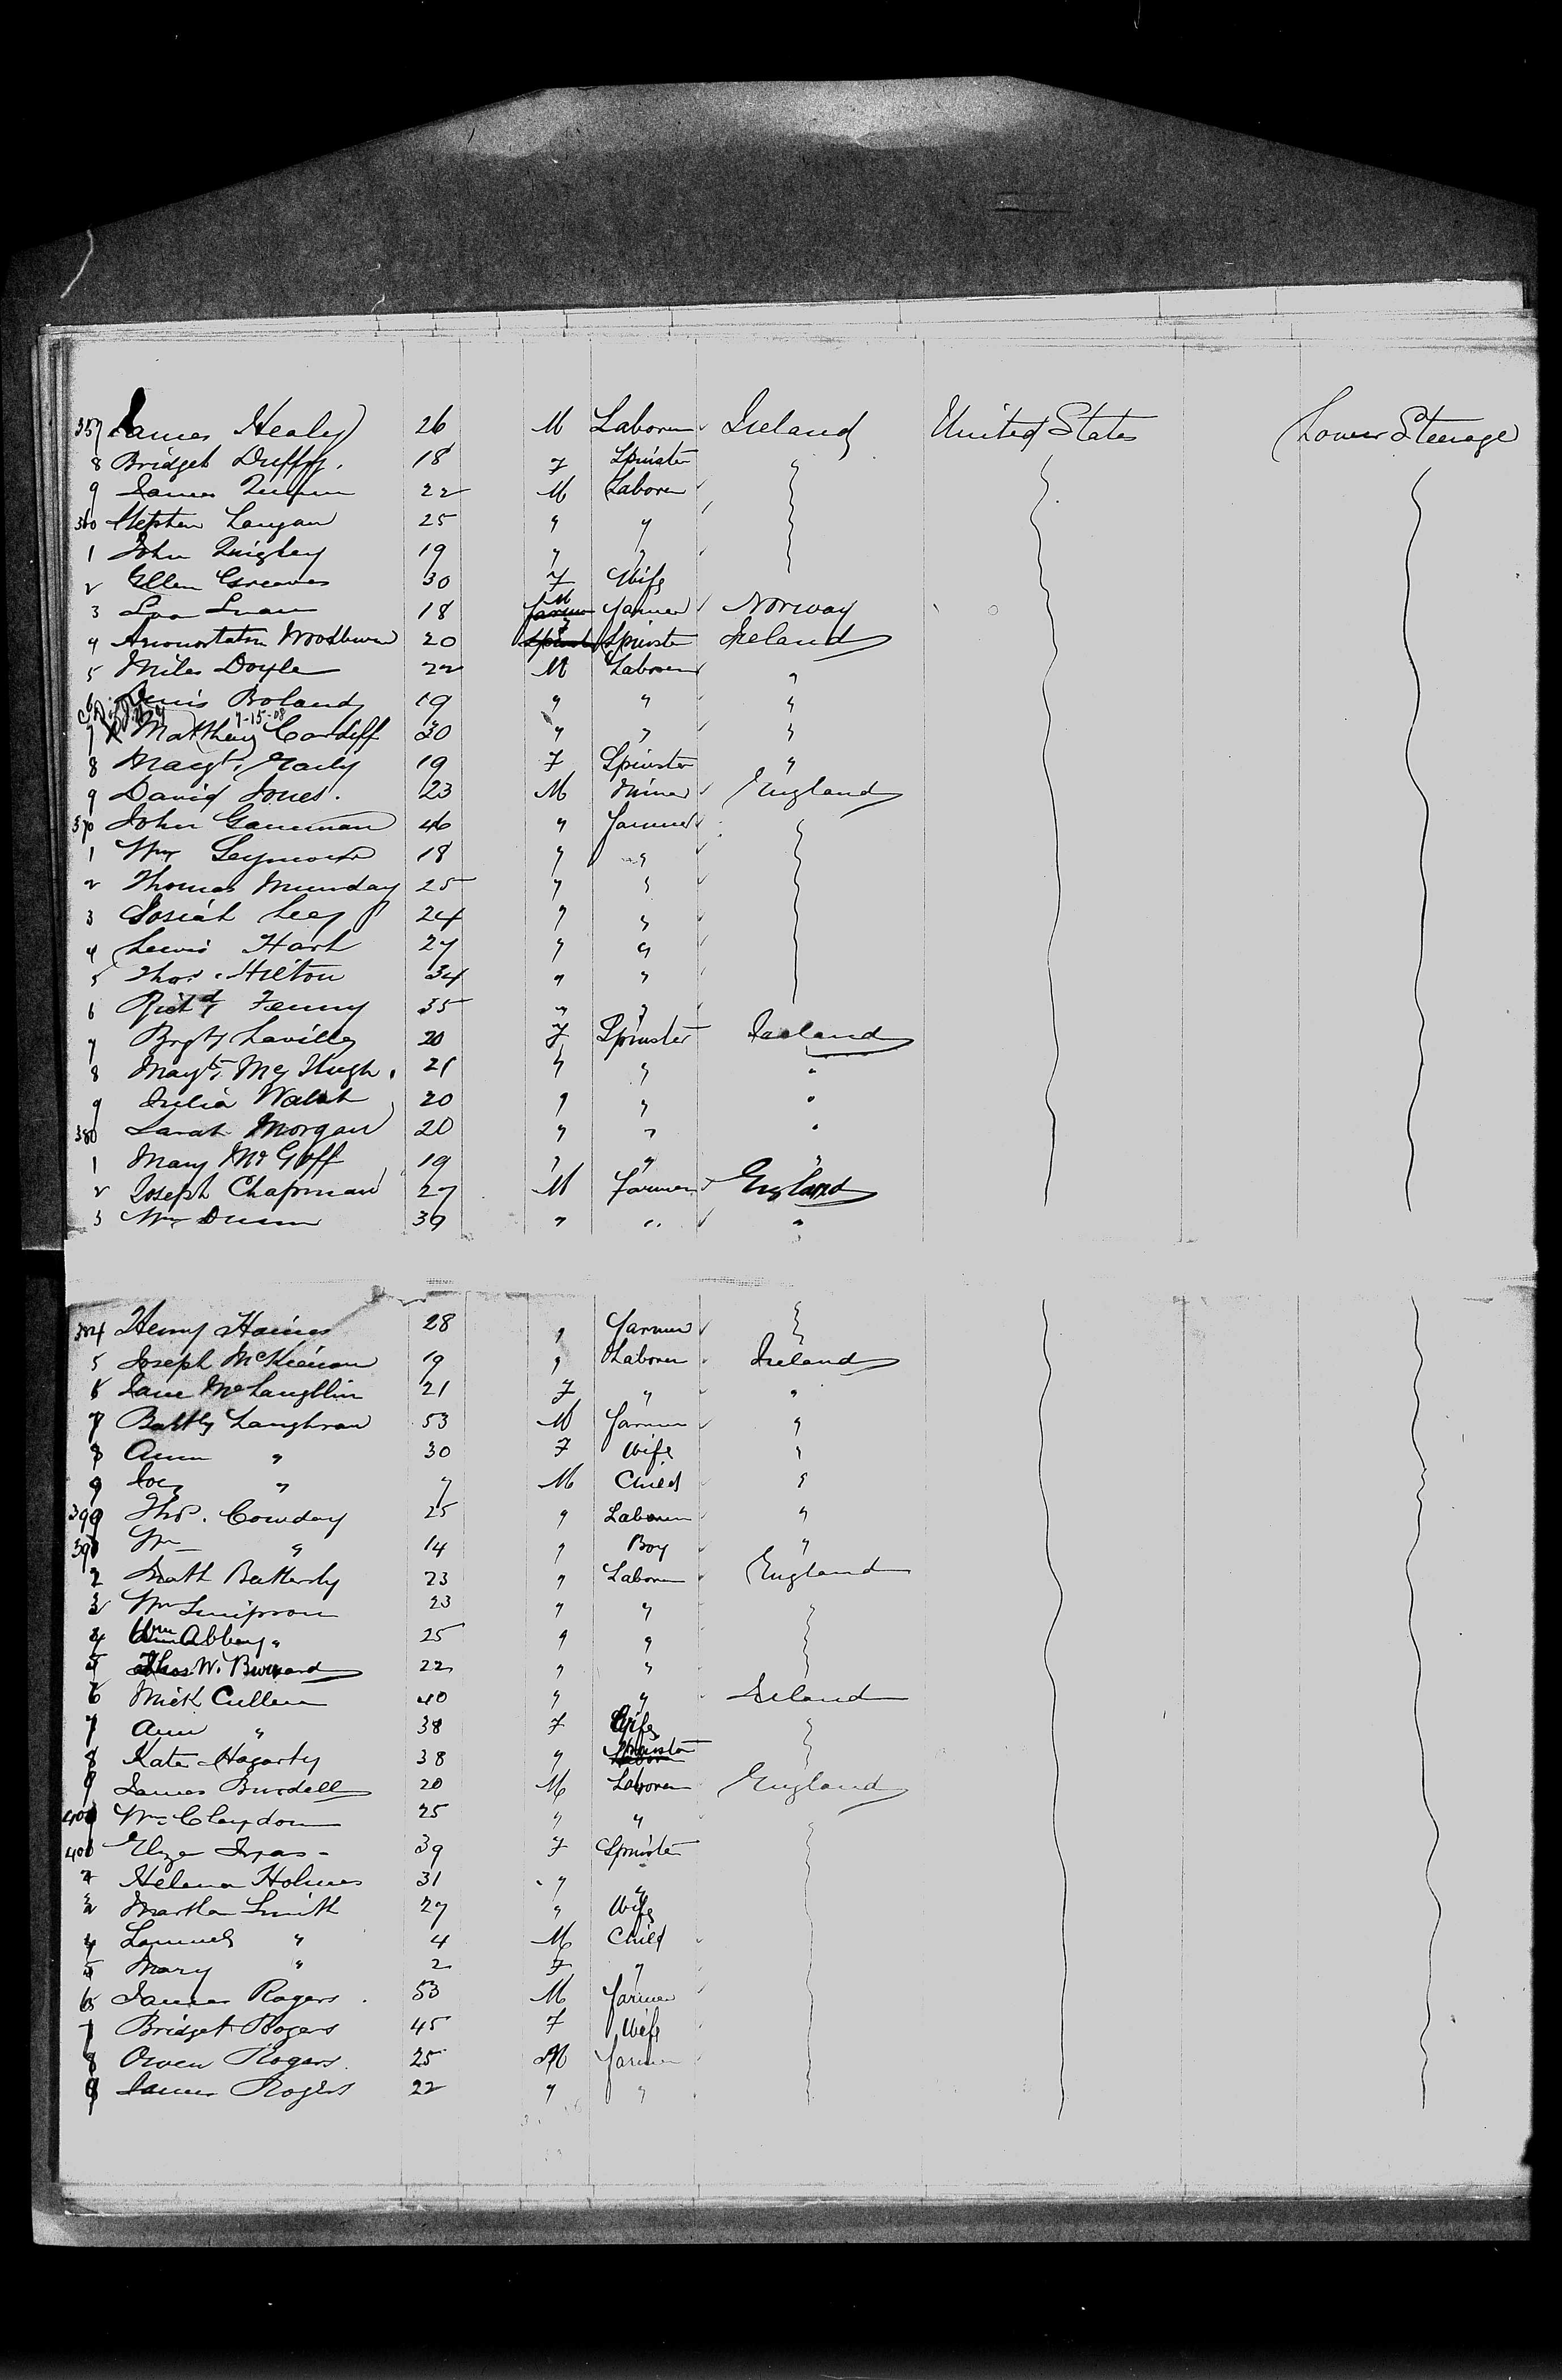 357 James Healy 26 M Laborer Ireland United States Lower Steerage
8 Bridget Duffy. 18 F Spinster "
9 James Quinn 22 M Laborer
360 Stephen Langan 25 " "
1 John Quigley 19 " "
2 Ellen Greaves 30 F Wife
3 18 M farmer Norway
4 20 F Spinster Ireland
5 Miles Doyle 22 M Laborer "
6 Denis Boland 19 " " "
7-15-08
7 X Matthew Cardiff 30 " " "
8 Margt. Early 19 F Spinster "
9 David Jones. 23 M Miner England
370 John Gamman 46 " farmer
1 Wm Seymour 18 " "
2 Thomas Munday 25 " "
3 Josiah Seey 24 " "
4 Lewis Hart 27 " "
5 Thos. Hilton 34 " "
6 Richd Fenny 35 " "
7 Brgt Laville 20 F Spinster Ireland
8 Margt. Mc Hugh. 21 " " "
9 Julia Walsh 20 " " "
380 Sarah Morgan 20 " " "
1 Mary Mc Goff 19 " " "
2 Joseph Chapman 27 M Farmer England
3 Wm Dunn 39 " " "
384 Henry Haines 28 " farmer
5 Joseph McKiernan 19 " Laborer Ireland
6 Jane McLaughlin 21 F " "
7 Bartly Laughran 53 M farmer "
8 Ann " 30 F Wife "
9 Joe " 7 M Child "
390 Thos. Cowday 25 " Laborer "
391 Wm " 14 " Boy "
2 Math Batterby 23 " Laborer England
3 Wm Simpson 23 " "
4 Wm Abbey " 25 " "
5 Thos W. 22 " "
6 Mick Cullen 40 " " Ireland
7 Ann " 38 F Wife
8 Kate Hagarty 38 " Spinster
9 James Burdell 20 M Laborer England
400 Wm Claydon 25 " "
401 Eliza 39 F Spinster
2 Helena Holmes 31 " "
3 Martha Smith 27 " Wife
4 Samuel " 4 M Child
5 Mary " 2 F "
6 James Rogers. 53 M farmer
7 Bridget Rogers 45 F Wife
8 Owen Rogers. 25 M farmer
9 James Rogers 22 " "